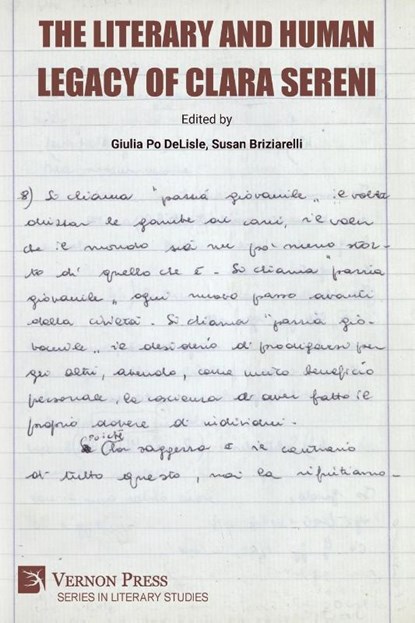 THE LITERARY AND HUMAN
LEGACY OF CLARA SERENI
Edited by
Giulia Po DeLisle, Susan Briziarelli
8) Si chiama "pazzia giovanile" il voler
drizzare le gambe ai cani, il voler
che il mondo sia un po' meno stor-
to di quello che è. Si chiama "pazzia
giovanile" ogni nuovo passo avanti
della civiltà. Si chiama "pazzia gio-
vanile" il desiderio di prodigarsi per
gli altri, avendo, come unico beneficio
personale, la coscienza di aver fatto il
proprio dovere di individui.
Poiché la saggezza è il contrario
di tutto questo, noi la rifiutiamo.
VERNON PRESS
SERIES IN LITERARY STUDIES